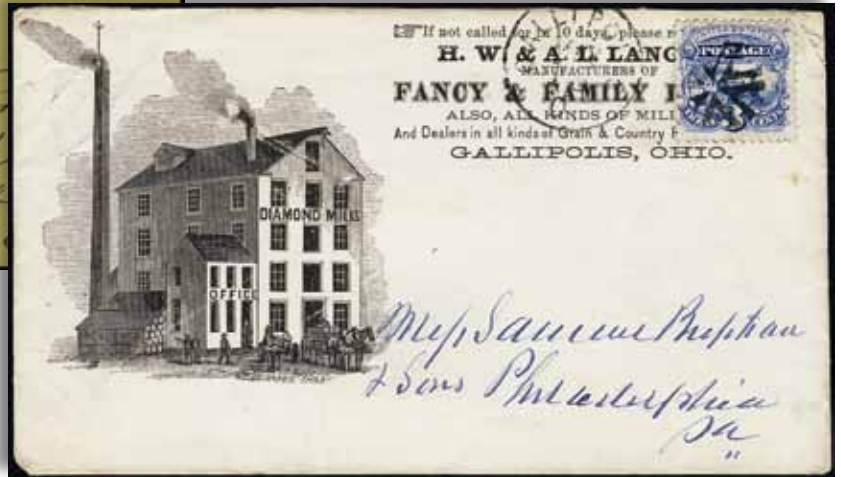 If not called for in 10 days, please
H. W. & A. L. LANG
MANUFACTURERS OF
FANCY & FAMILY
ALSO, ALL KINDS OF MILL
And Dealers in all kinds of Grain & Country
GALLIPOLIS, OHIO.
POSTAGE
DIAMOND MILLS
OFFICE
& Sons Philadelphia
Pa